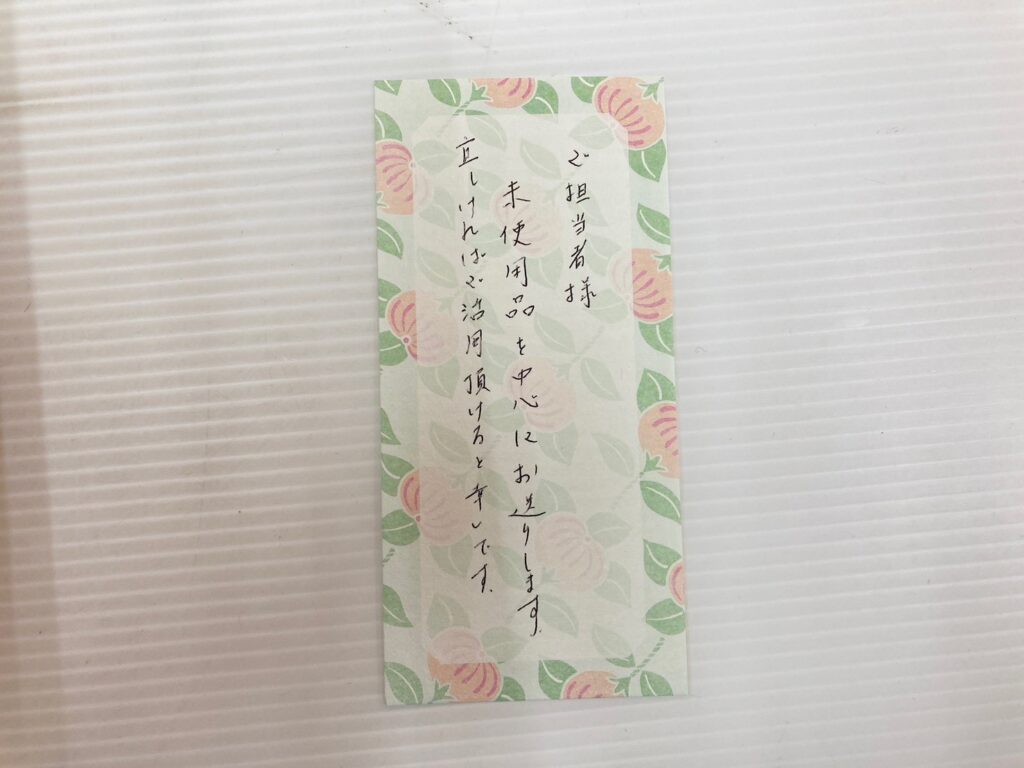 ご担当者様
未使用品を中心にお送りします。
宜しければご活用頂けると幸いです。